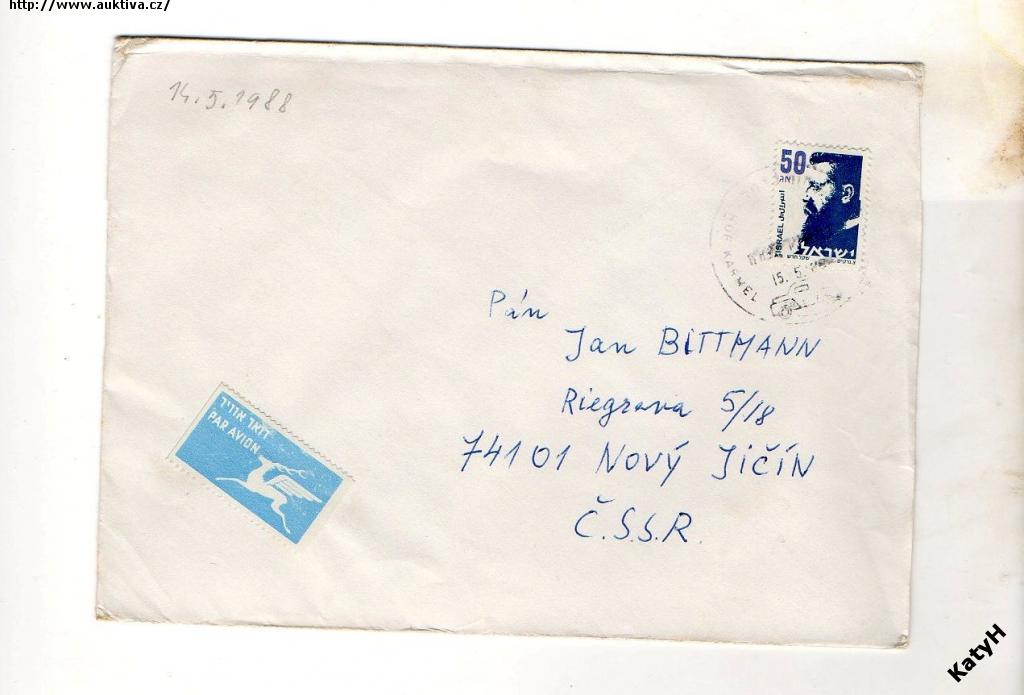 http://www.auktiva.cz/
14.5.1988
50
אג
ISRAEL اسرائيل
ישראל
HOF KARMEL
15. 5.
Pán
Jan BITTMANN
Riegrova 5/18
74101 NOVÝ JIČÍN
Č.S.S.R.
דואר אוויר
PAR AVION
KatyH